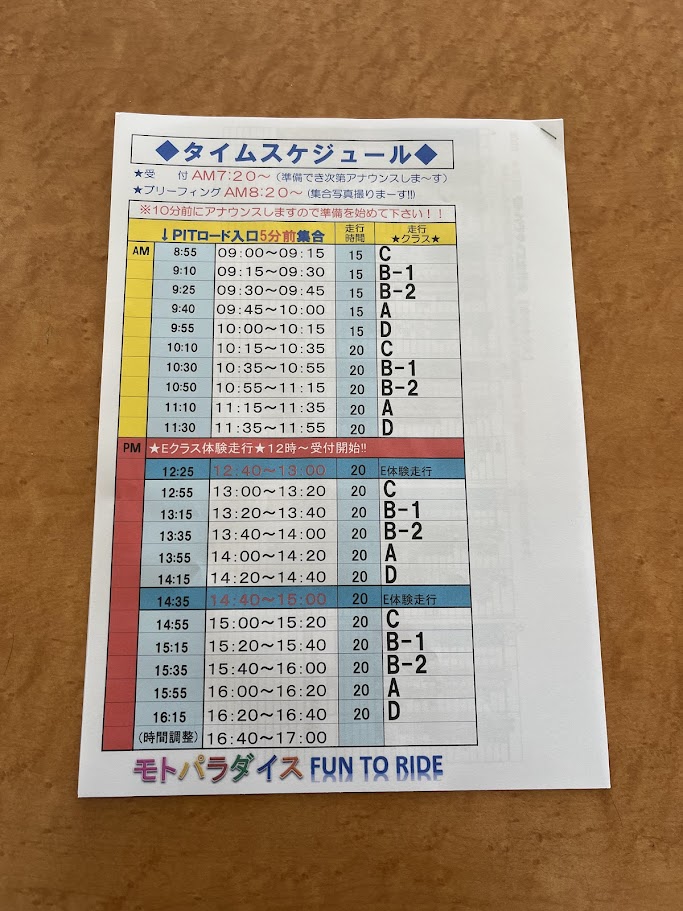 ◆タイムスケジュール◆
★受　　付 AM7:20～（準備でき次第アナウンスしま～す）
★ブリーフィング AM8:20～（集合写真撮りまーす!!）
※10分前にアナウンスしますので準備を始めて下さい！！
↓PITロード入口5分前集合 走行時間 走行★クラス★
AM 8:55 09:00～09:15 15 C
9:10 09:15～09:30 15 B-1
9:25 09:30～09:45 15 B-2
9:40 09:45～10:00 15 A
9:55 10:00～10:15 15 D
10:10 10:15～10:35 20 C
10:30 10:35～10:55 20 B-1
10:50 10:55～11:15 20 B-2
11:10 11:15～11:35 20 A
11:30 11:35～11:55 20 D
PM ★Eクラス体験走行★12時～受付開始!!
12:25 12:40～13:00 20 E体験走行
12:55 13:00～13:20 20 C
13:15 13:20～13:40 20 B-1
13:35 13:40～14:00 20 B-2
13:55 14:00～14:20 20 A
14:15 14:20～14:40 20 D
14:35 14:40～15:00 20 E体験走行
14:55 15:00～15:20 20 C
15:15 15:20～15:40 20 B-1
15:35 15:40～16:00 20 B-2
15:55 16:00～16:20 20 A
16:15 16:20～16:40 20 D
(時間調整) 16:40～17:00
モトパラダイス FUN TO RIDE